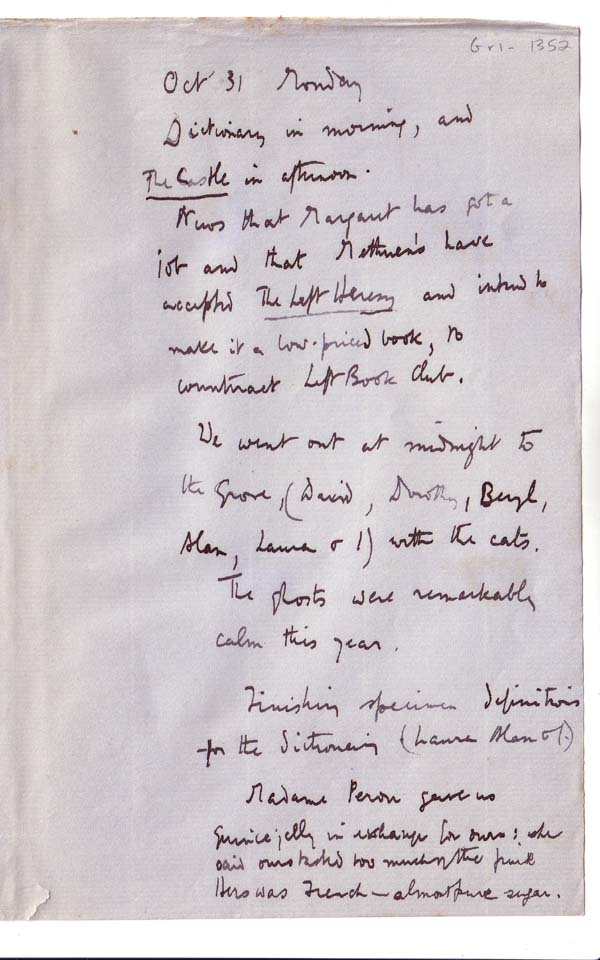 Gr1 - 1352
Oct 31 Monday
Dictionary in morning, and
The Castle in afternoon.
News that Margaret has got a
job and that Methuen's have
accepted The Left Heresy and intend to
make it a low-priced book, to
counteract Left Book Club.
We went out at midnight to
the Grove, (David, Dorothy, Beryl,
Alan, Laura & I) with the cats.
The ghosts were remarkably
calm this year.
Finishing specimen definitions
for the dictionary (Laura Alan & I.)
Madame Peron gave us
quince jelly in exchange for ours: she
said ours tasted too much of the fruit
Hers was French – almost pure sugar.